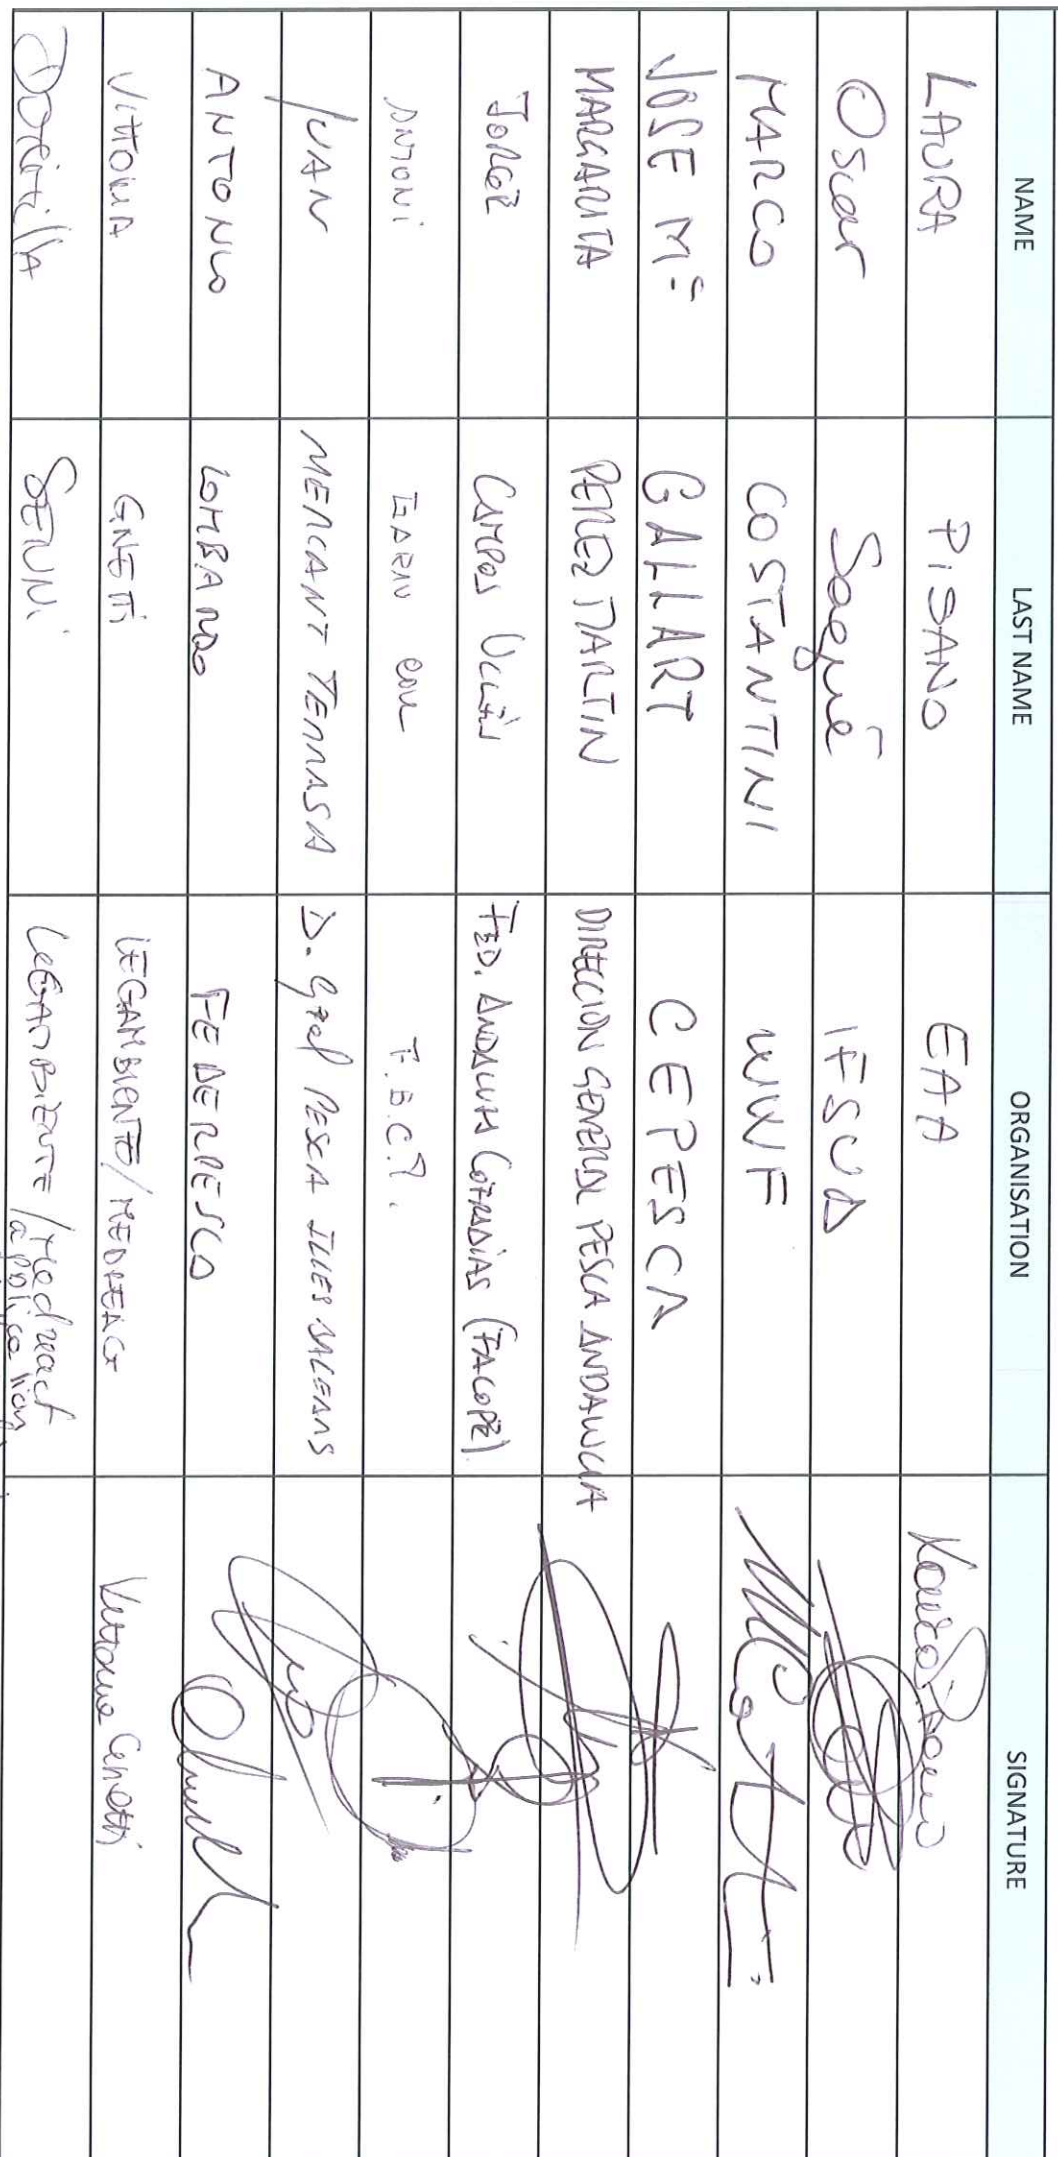 NAME LAST NAME ORGANISATION SIGNATURE
LAURA PISANO EAA Laura Pisano
Oscar Sagué IFSUA
MARCO COSTANTINI WWF
JOSE Mª GALLART CEPESCA
MARGARITA PEREZ MARTIN DIRECCION GENERAL PESCA ANDALUCIA
JORGE CAMPOS FED. ANDALUZA COFRADIAS (FACOPE)
ANTONI GARAU COLL F.B.C.P.
JUAN MERCANT TERRASA D. Gral PESCA ILLES BALEARS
ANTONIO LOMBARDO FEDERPESCA
VITTORIA GNETTI LEGAMBIENTE/MEDREACT Vittoria Gnetti
Domitilla SENNI LEGAMBIENTE/Medreact
application